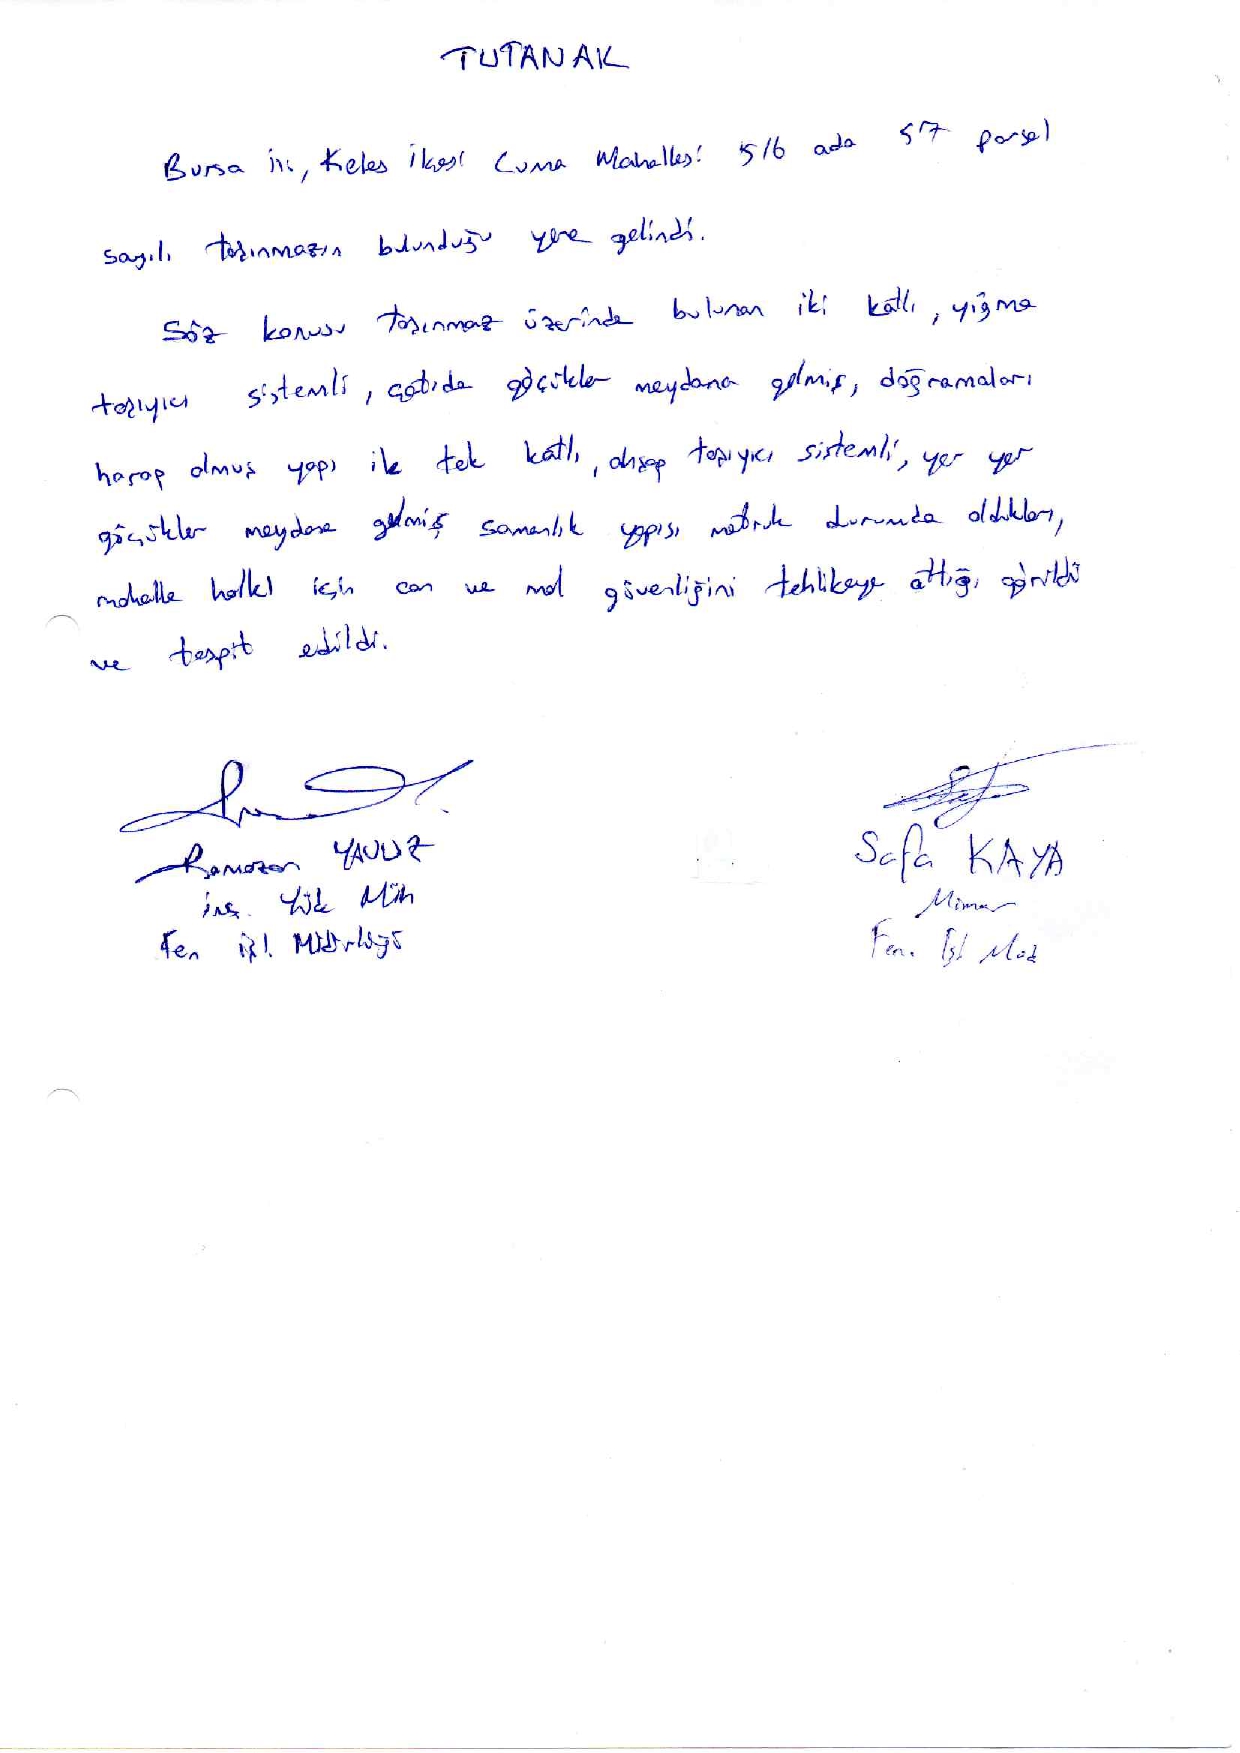 TUTANAK
Bursa ili, Keles ilçesi Cuma Mahallesi 516 ada 517 parsel
sayılı taşınmazın bulunduğu yere gelindi.
Söz konusu taşınmaz üzerinde bulunan iki katlı, yığma
taşıyıcı sistemli, çatıda göçükler meydana gelmiş, doğramaları
harap olmuş yapı ile tek katlı, ahşap taşıyıcı sistemli, yer yer
göçükler meydana gelmiş samanlık yapısı metruk durumda oldukları,
mahalle halkı için can ve mal güvenliğini tehlikeye attığı görüldü
ve tespit edildi.
Ramazan YAVUZ
İnş. Yük Müh
Fen işl. Müdürlüğü
Safa KAYA
Mimar
Fen. İşl Müd